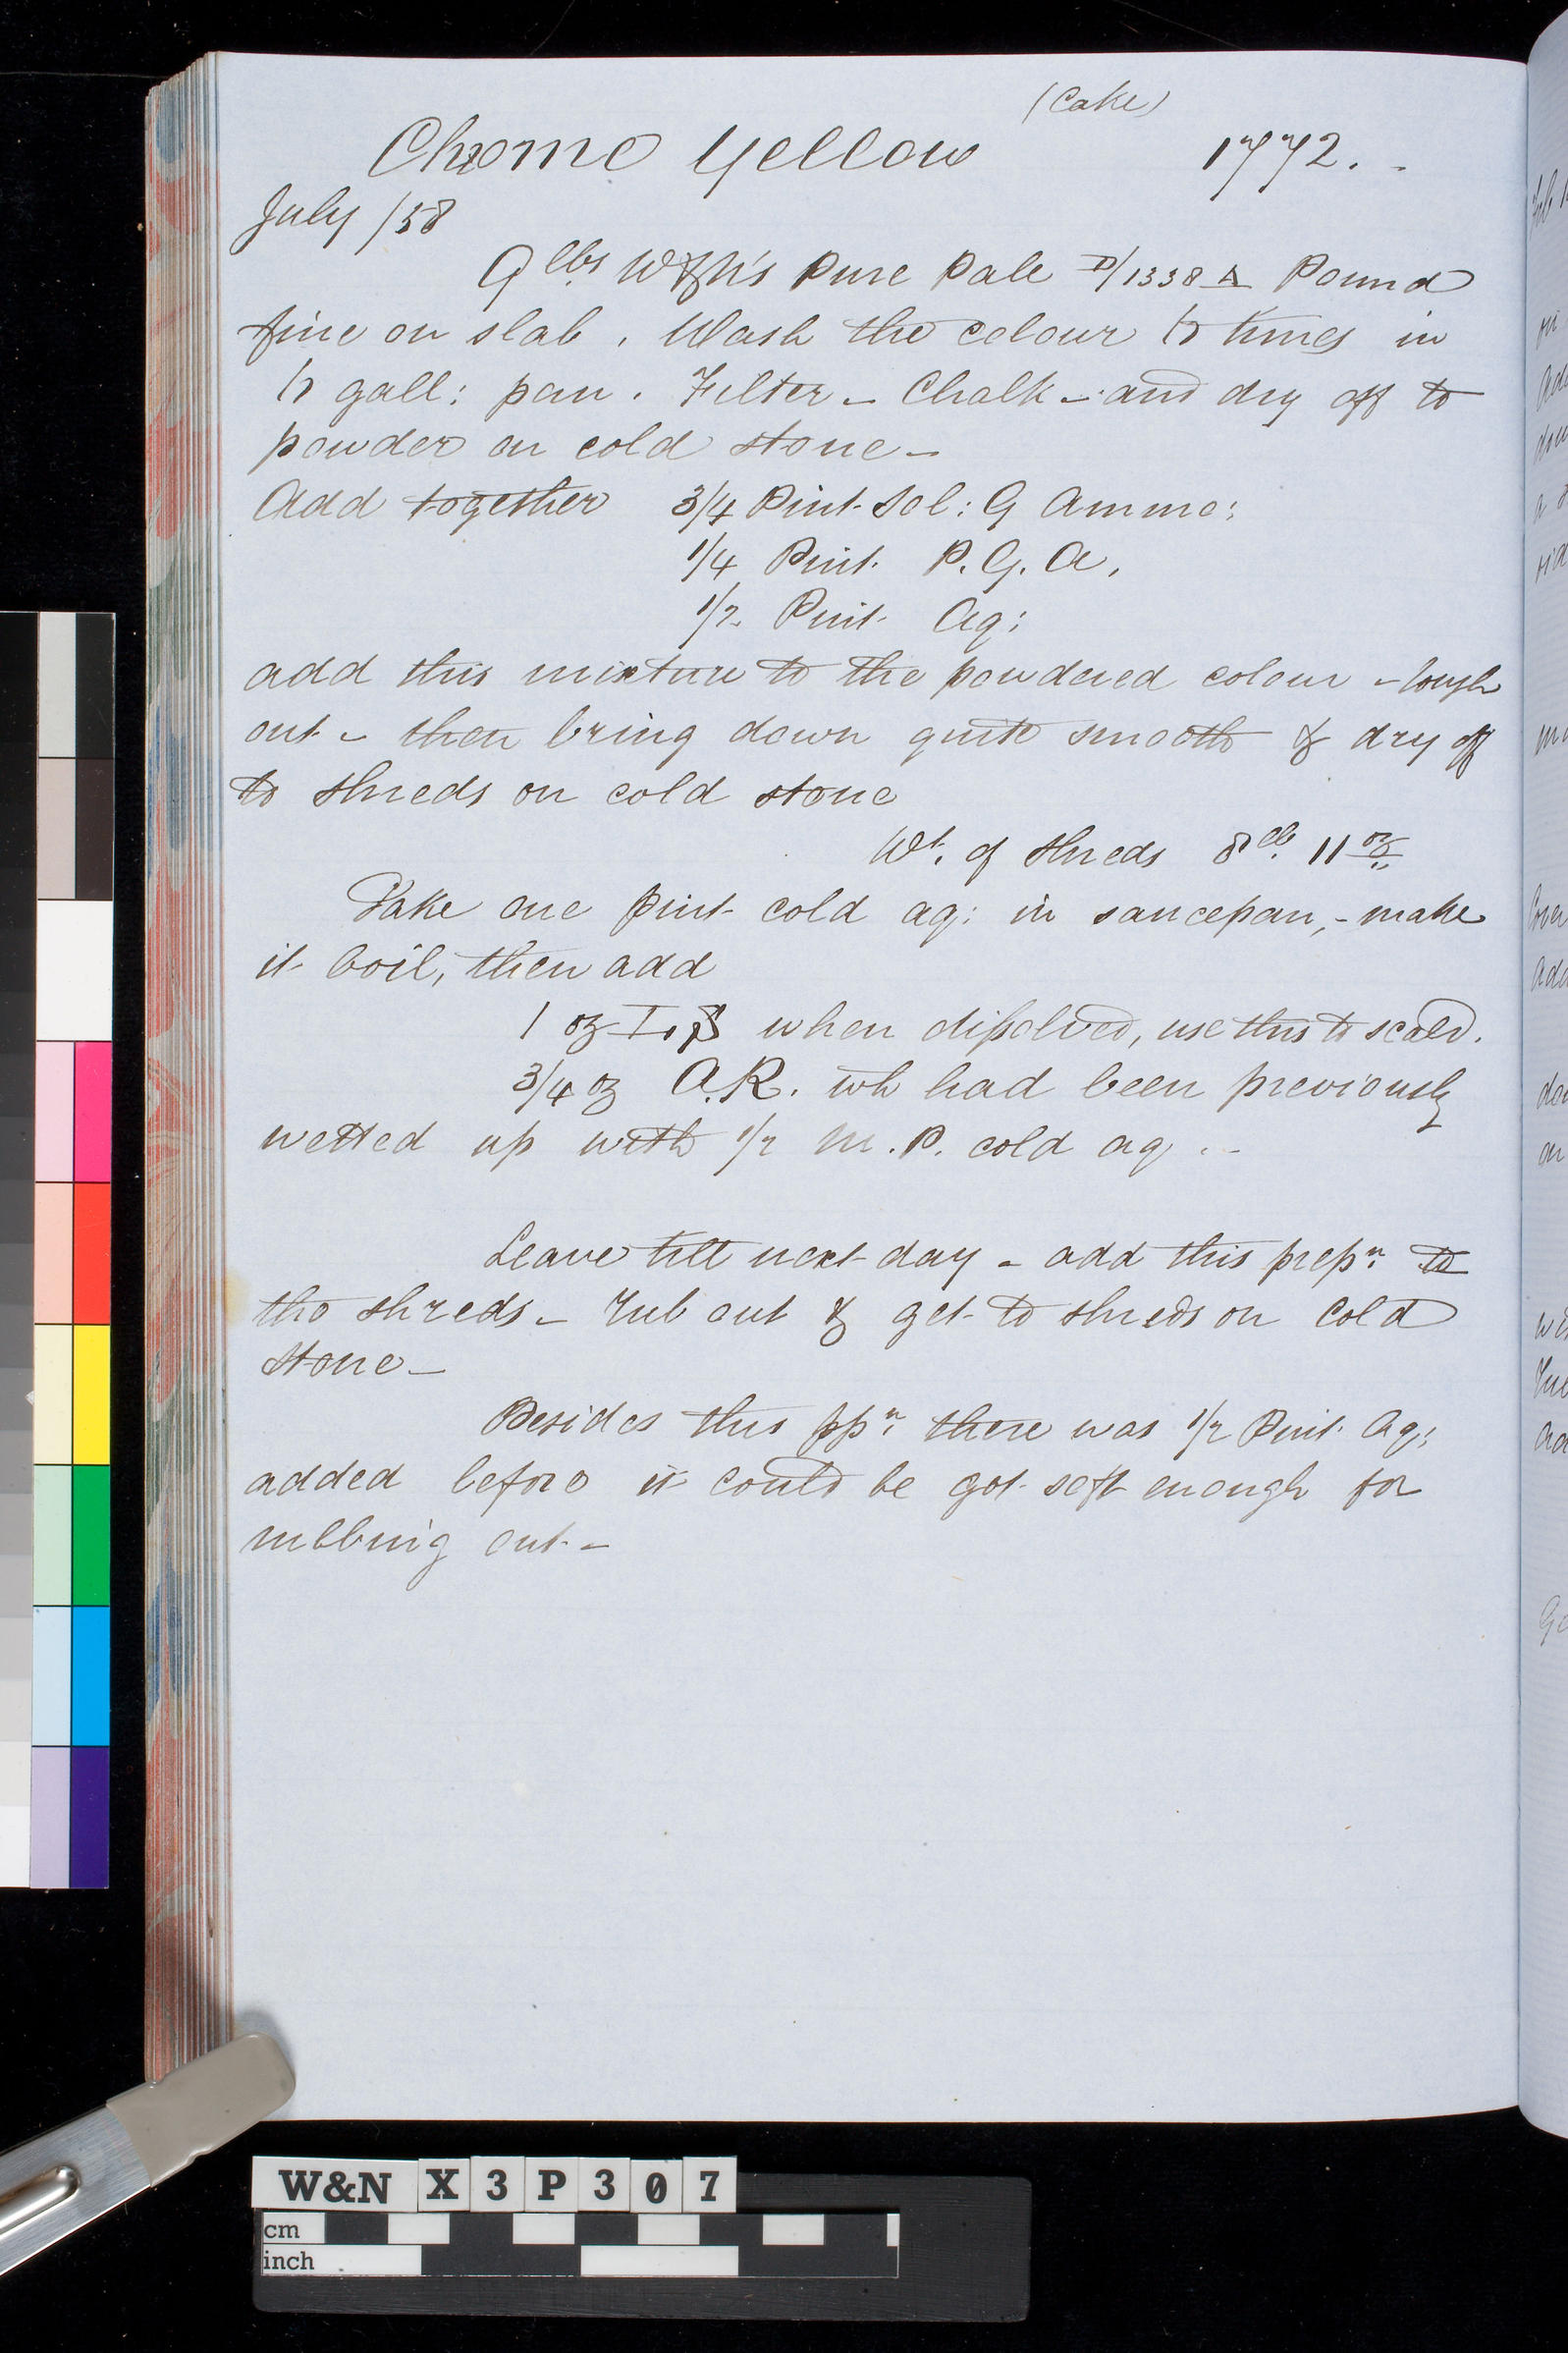 (Cake)
Chrome Yellow 1772.
July /58
9 lbs. W&N's Pure Pale D/1338 A Pound
fine on slab. Wash the colour 6 times in
6 gall: pan. Filter - Chalk - and dry off to
powder on cold stone -
Add together 3/4 Pint Sol: G Ammo:
1/4 Pint P. G. A.
1/2 Pint Aq:
add this mixture to the powdered colour - tough
out - then bring down quite smooth & dry off
to shreds on cold stone
Wt. of shreds 8 lb. 11 oz
Take one pint cold aq: in saucepan, - make
it boil, then add
1 oz when dissolved, use this to scald.
3/4 oz A.R. wh had been previously
wetted up with 1/2 M.P. cold aq. -
Leave till next day - add this prepn: to
the shreds - rub out & get to shreds on Cold
Stone -
Besides this ppn: there was 1/2 Pint Aq:
added before it could be got soft enough for
rubbing out -
W&N X 3 P 3 0 7
cm
inch